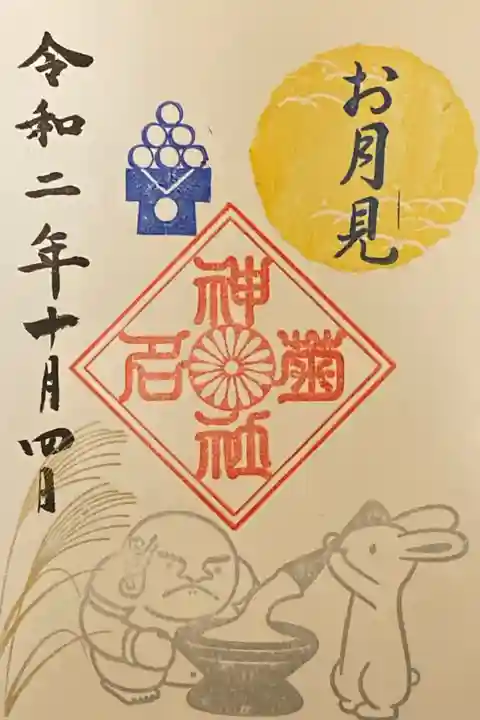 お月見
菊名神社
令和二年十月四日